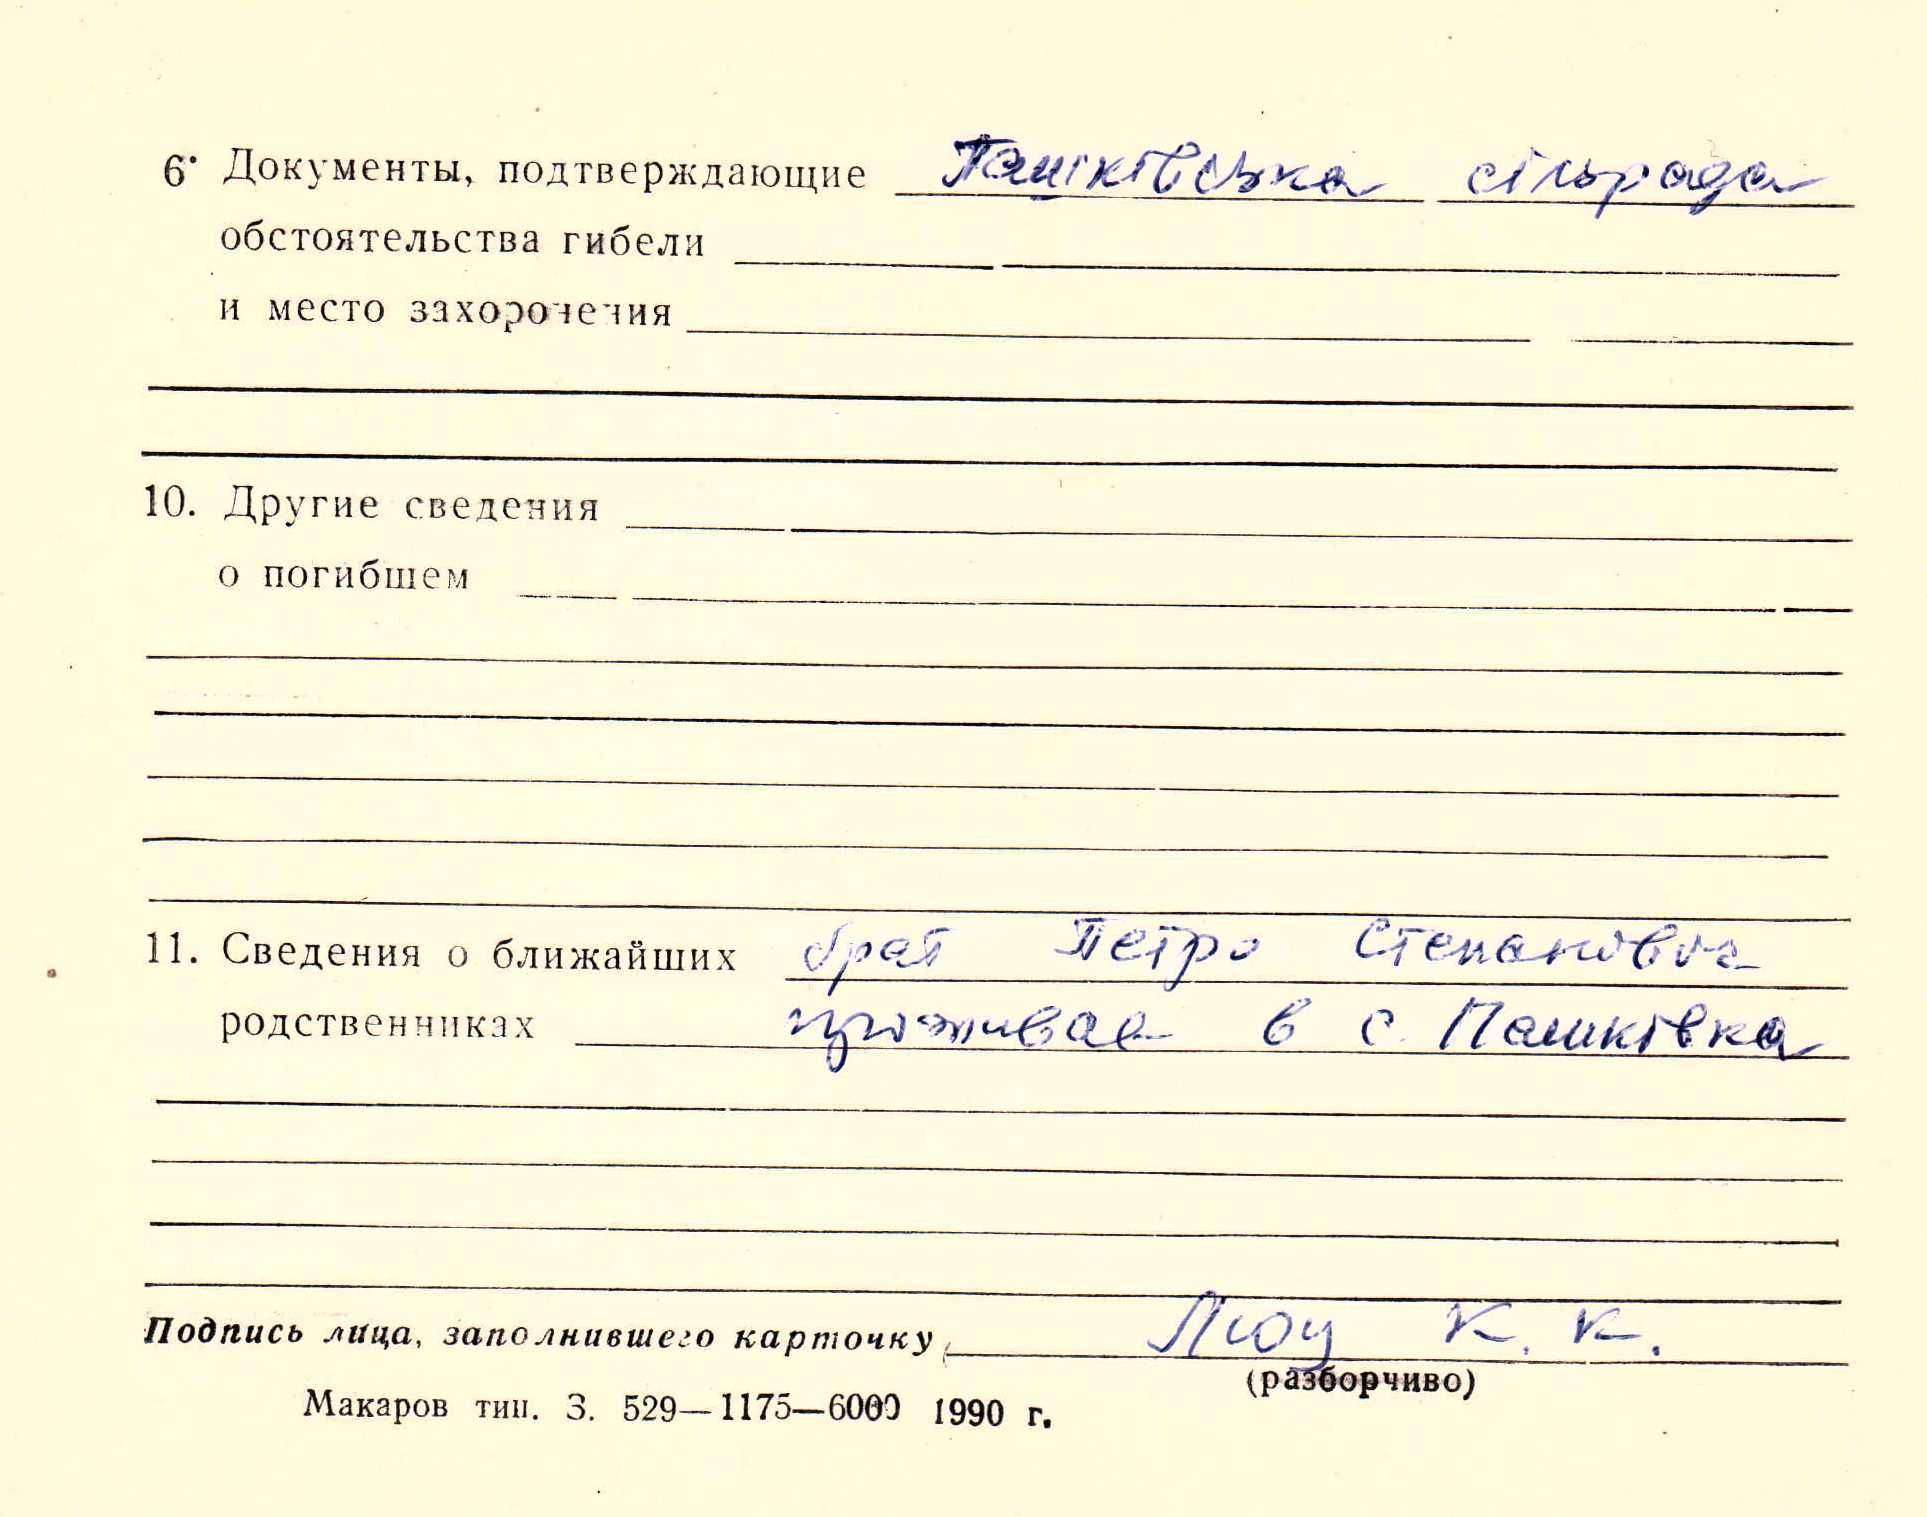 6. Документы, подтверждающие Пашківська сільрада
обстоятельства гибели
и место захоронения
10. Другие сведения
о погибшем
11. Сведения о ближайших брат Петро Степанович
родственниках проживає в с. Пашківка
Подпись лица, заполнившего карточку К. К.
(разборчиво)
Макаров тип. З. 529—1175—6000 1990 г.